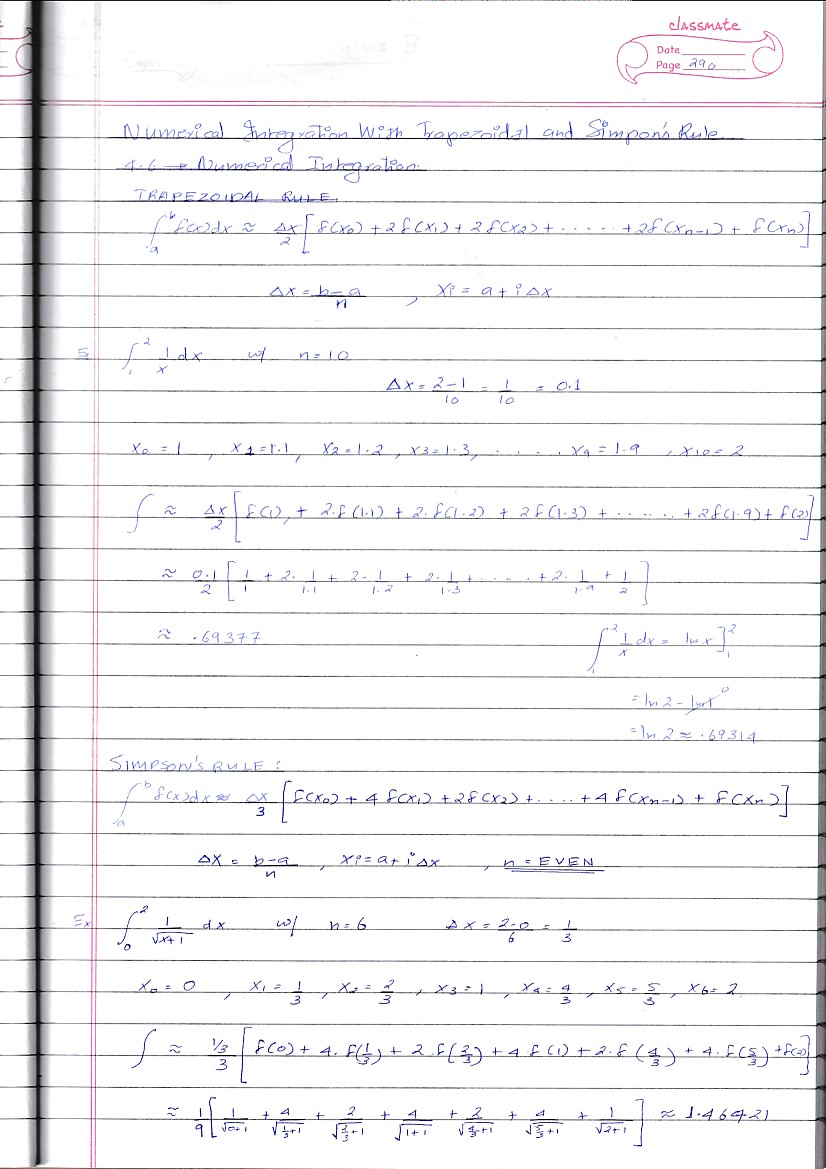 classmate
Date
Page 290
Numerical Integration With Trapezoidal and Simpon's Rule
4.6 → Numerical Integration.
TRAPEZOIDAL RULE.
∫_a^b f(x)dx ≈ Δx/2 [f(x₀) + 2f(x₁) + 2f(x₂) + ...... + 2f(xn-1) + f(xn)]
Δx = b-a/n , xi = a + iΔx
∫_1^2 1/x dx w/ n = 10
Δx = 2-1/10 = 1/10 = 0.1
x₀ = 1 , x₁ = 1.1 , x₂ = 1.2 , x₃ = 1.3, ..... x₉ = 1.9 , x₁₀ = 2
∫ ≈ Δx/2 [f(1) + 2.f(1.1) + 2.f(1.2) + 2f(1.3) + ...... + 2f(1.9) + f(2)]
≈ 0.1/2 [1/1 + 2.1/1.1 + 2.1/1.2 + 2.1/1.3 + ..... + 2.1/1.9 + 1/2]
≈ .69377
∫_1^2 1/x dx = ln x]_1^2
= ln 2 - ln 1 0
= ln 2 ≈ .69314
SIMPSON'S RULE :
∫_a^b f(x)dx ≈ Δx/3 [f(x₀) + 4f(x₁) + 2f(x₂) + ..... + 4f(xn-1) + f(xn)]
Δx = b-a/n , xi = a + iΔx , n = EVEN
Ex ∫_0^2 1/√(x+1) dx w/ n = 6 Δx = 2-0/6 = 1/3
x₀ = 0 , x₁ = 1/3 , x₂ = 2/3 , x₃ = 1 , x₄ = 4/3 , x₅ = 5/3 , x₆ = 2
∫ ≈ 1/3/3 [f(0) + 4.f(1/3) + 2.f(2/3) + 4f(1) + 2.f(4/3) + 4.f(5/3) + f(2)]
≈ 1/9 [1/√(0+1) + 4/√(1/3+1) + 2/√(2/3+1) + 4/√(1+1) + 2/√(4/3+1) + 4/√(5/3+1) + 1/√(2+1)] ≈ 1.46421